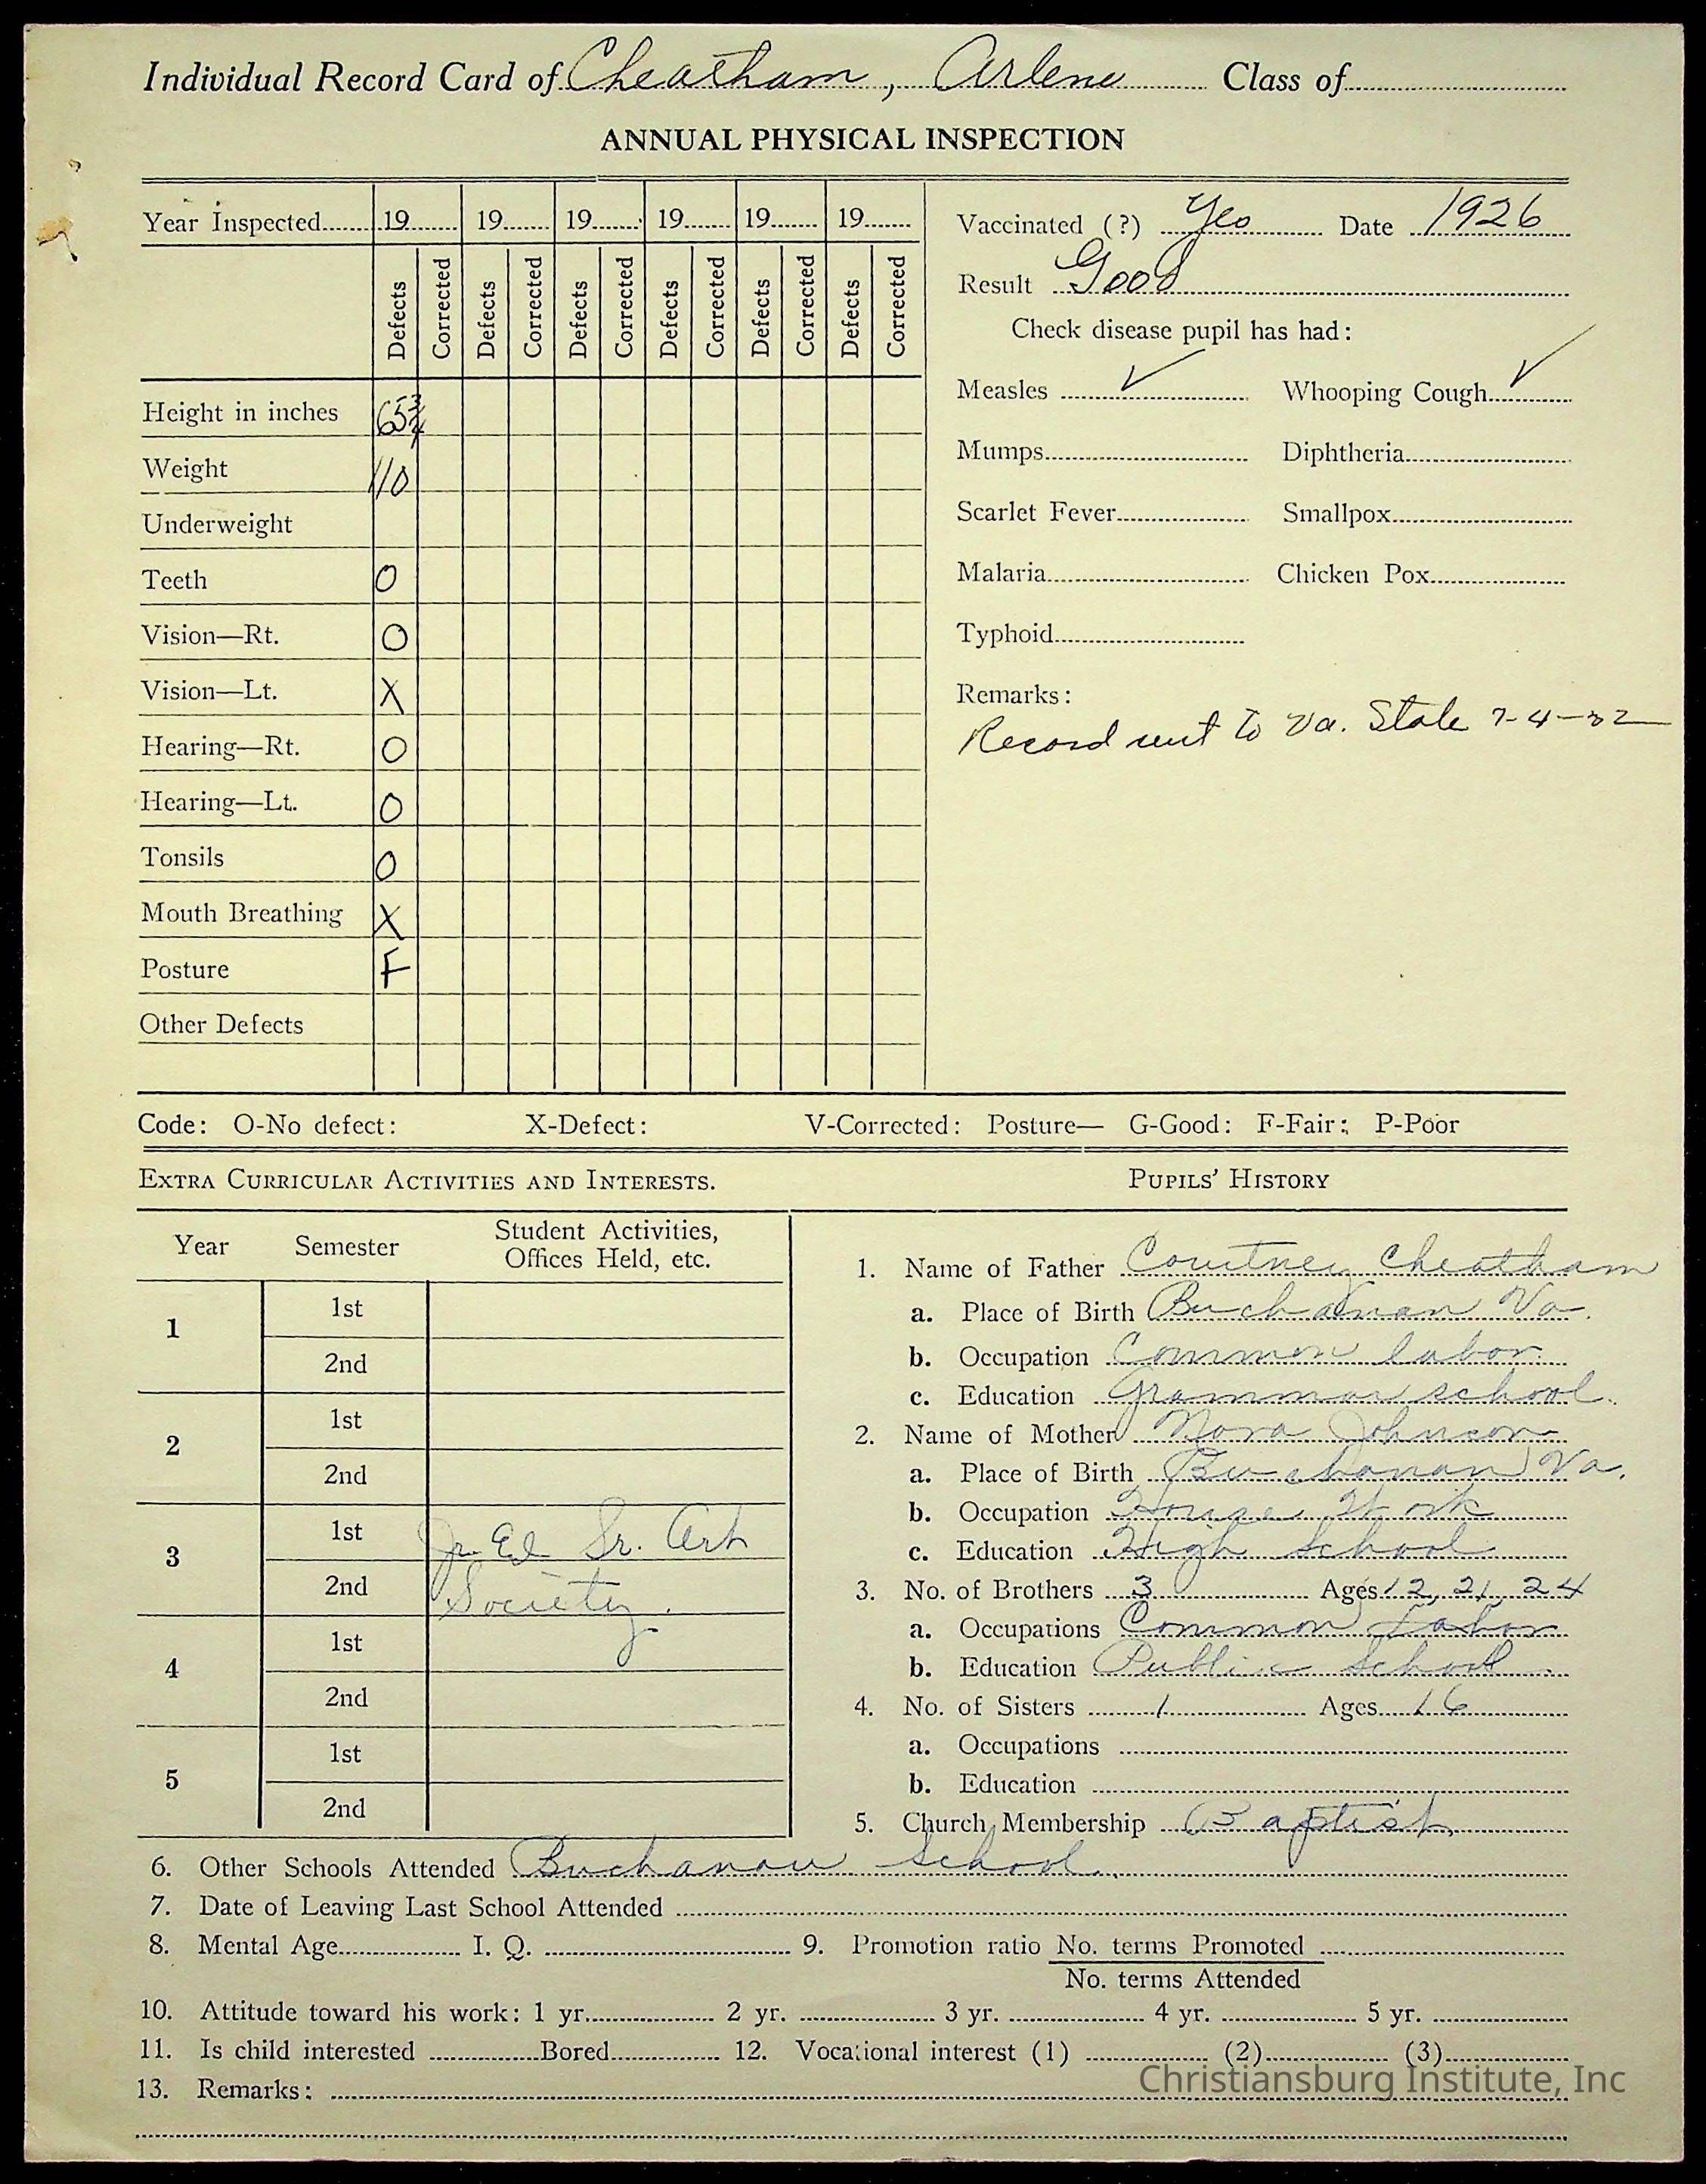 Individual Record Card of Cheatham, Arlene Class of
ANNUAL PHYSICAL INSPECTION
Year Inspected 19 19 19 19 19 19
Defects Corrected Defects Corrected Defects Corrected Defects Corrected Defects Corrected Defects Corrected
Height in inches 65 3/4
Weight 110
Underweight
Teeth O
Vision—Rt. O
Vision—Lt. X
Hearing—Rt. O
Hearing—Lt. O
Tonsils O
Mouth Breathing X
Posture F
Other Defects
Vaccinated (?) Yes Date 1926
Result Good
Check disease pupil has had:
Measles ✓ Whooping Cough ✓
Mumps Diphtheria
Scarlet Fever Smallpox
Malaria Chicken Pox
Typhoid
Remarks:
Record sent to Va. State
Code: O-No defect: X-Defect: V-Corrected: Posture— G-Good: F-Fair: P-Poor
EXTRA CURRICULAR ACTIVITIES AND INTERESTS.
Year Semester Student Activities, Offices Held, etc.
1 1st
2nd
2 1st
2nd
3 1st Jr. Ed Sr. Art
2nd Society.
4 1st
2nd
5 1st
2nd
PUPILS' HISTORY
1. Name of Father Courtney Cheatham
a. Place of Birth Buchanan Va.
b. Occupation Common labor
c. Education Grammar school.
2. Name of Mother Nora Johnson
a. Place of Birth Buchanan Va.
b. Occupation House Work
c. Education High School
3. No. of Brothers 3 Ages 12, 21, 24
a. Occupations Common Labor
b. Education Public School
4. No. of Sisters 1 Ages 16
a. Occupations
b. Education
5. Church Membership Baptist
6. Other Schools Attended Buchanan School.
7. Date of Leaving Last School Attended
8. Mental Age I. Q. 9. Promotion ratio No. terms Promoted
No. terms Attended
10. Attitude toward his work: 1 yr. 2 yr. 3 yr. 4 yr. 5 yr.
11. Is child interested Bored 12. Vocational interest (1) (2) (3)
13. Remarks:
Christiansburg Institute, Inc